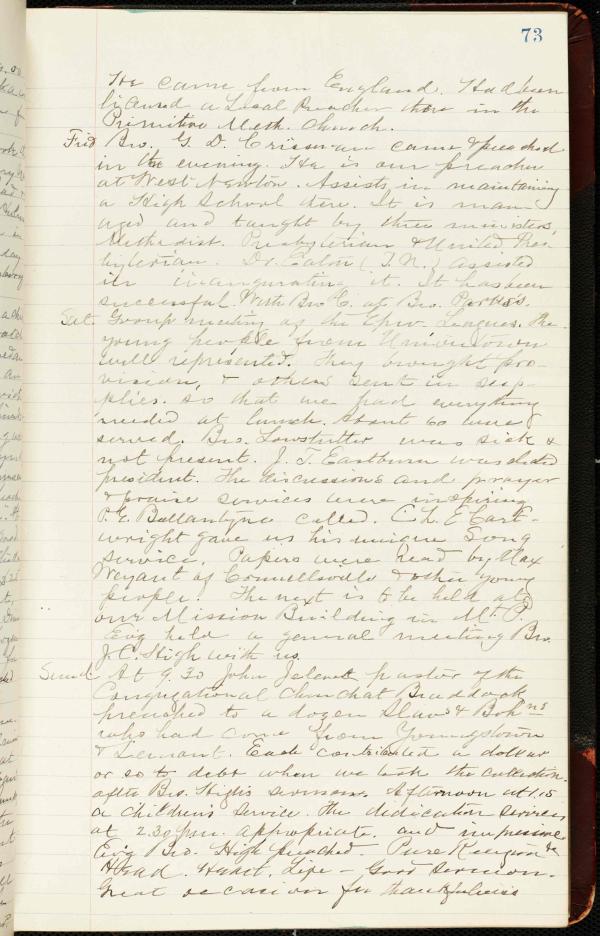 73
He came from England. Had been
licensed a Local Preacher there in the
Primitive Meth. Church.
Frid Bro. G. D. Crissman came & preached
in the evening. He is our preacher
at West Newton. Assists in maintaining
a High School there. It is man-
aged and taught by three ministers,
Methodist. Presbyterian & United Pres-
byterian. Dr. Eaton (T.N.) assisted
in inaugurating it. It has been
successful. With Bro C. at Bro. Parks's.
Sat. Group meeting of the Epw. Leagues. The
young people from Uniontown
well represented. They brought pro-
vision, & others sent in sup-
plies. so that we had everything
needed at lunch. About 60 were
served. Bro. Lowstutter was sick &
not present. J. T. Eastburn was elected
president. The discussions and prayer
& praise services were inspiring
P.E. Ballantyne called. C. L. E. Cart-
wright gave us his unique Song
service. Papers were read by Max
Weyant of Connellsville & other young
people. The next is to be held at
our Mission Building in Mt. P.
Ev'g held a general meeting Bro.
J. C. High with us.
Sund. At 9.30 John pastor of the
Congregational Church at Braddock
preached to a dozen Slavs & Bohns
who had come from Youngstown
& Lemont. Each contributed a dollar
or so to debt when we took the collection.
after Bro. High's sermon. Afternoon at 1.15
a children's service. The dedication services
at 2.30 p.m. appropriate. and impressive
Ev'g Bro. High preached. Pure Religion &c
Head. Heart. Life – Good sermon.
Great occasion for thankfulness